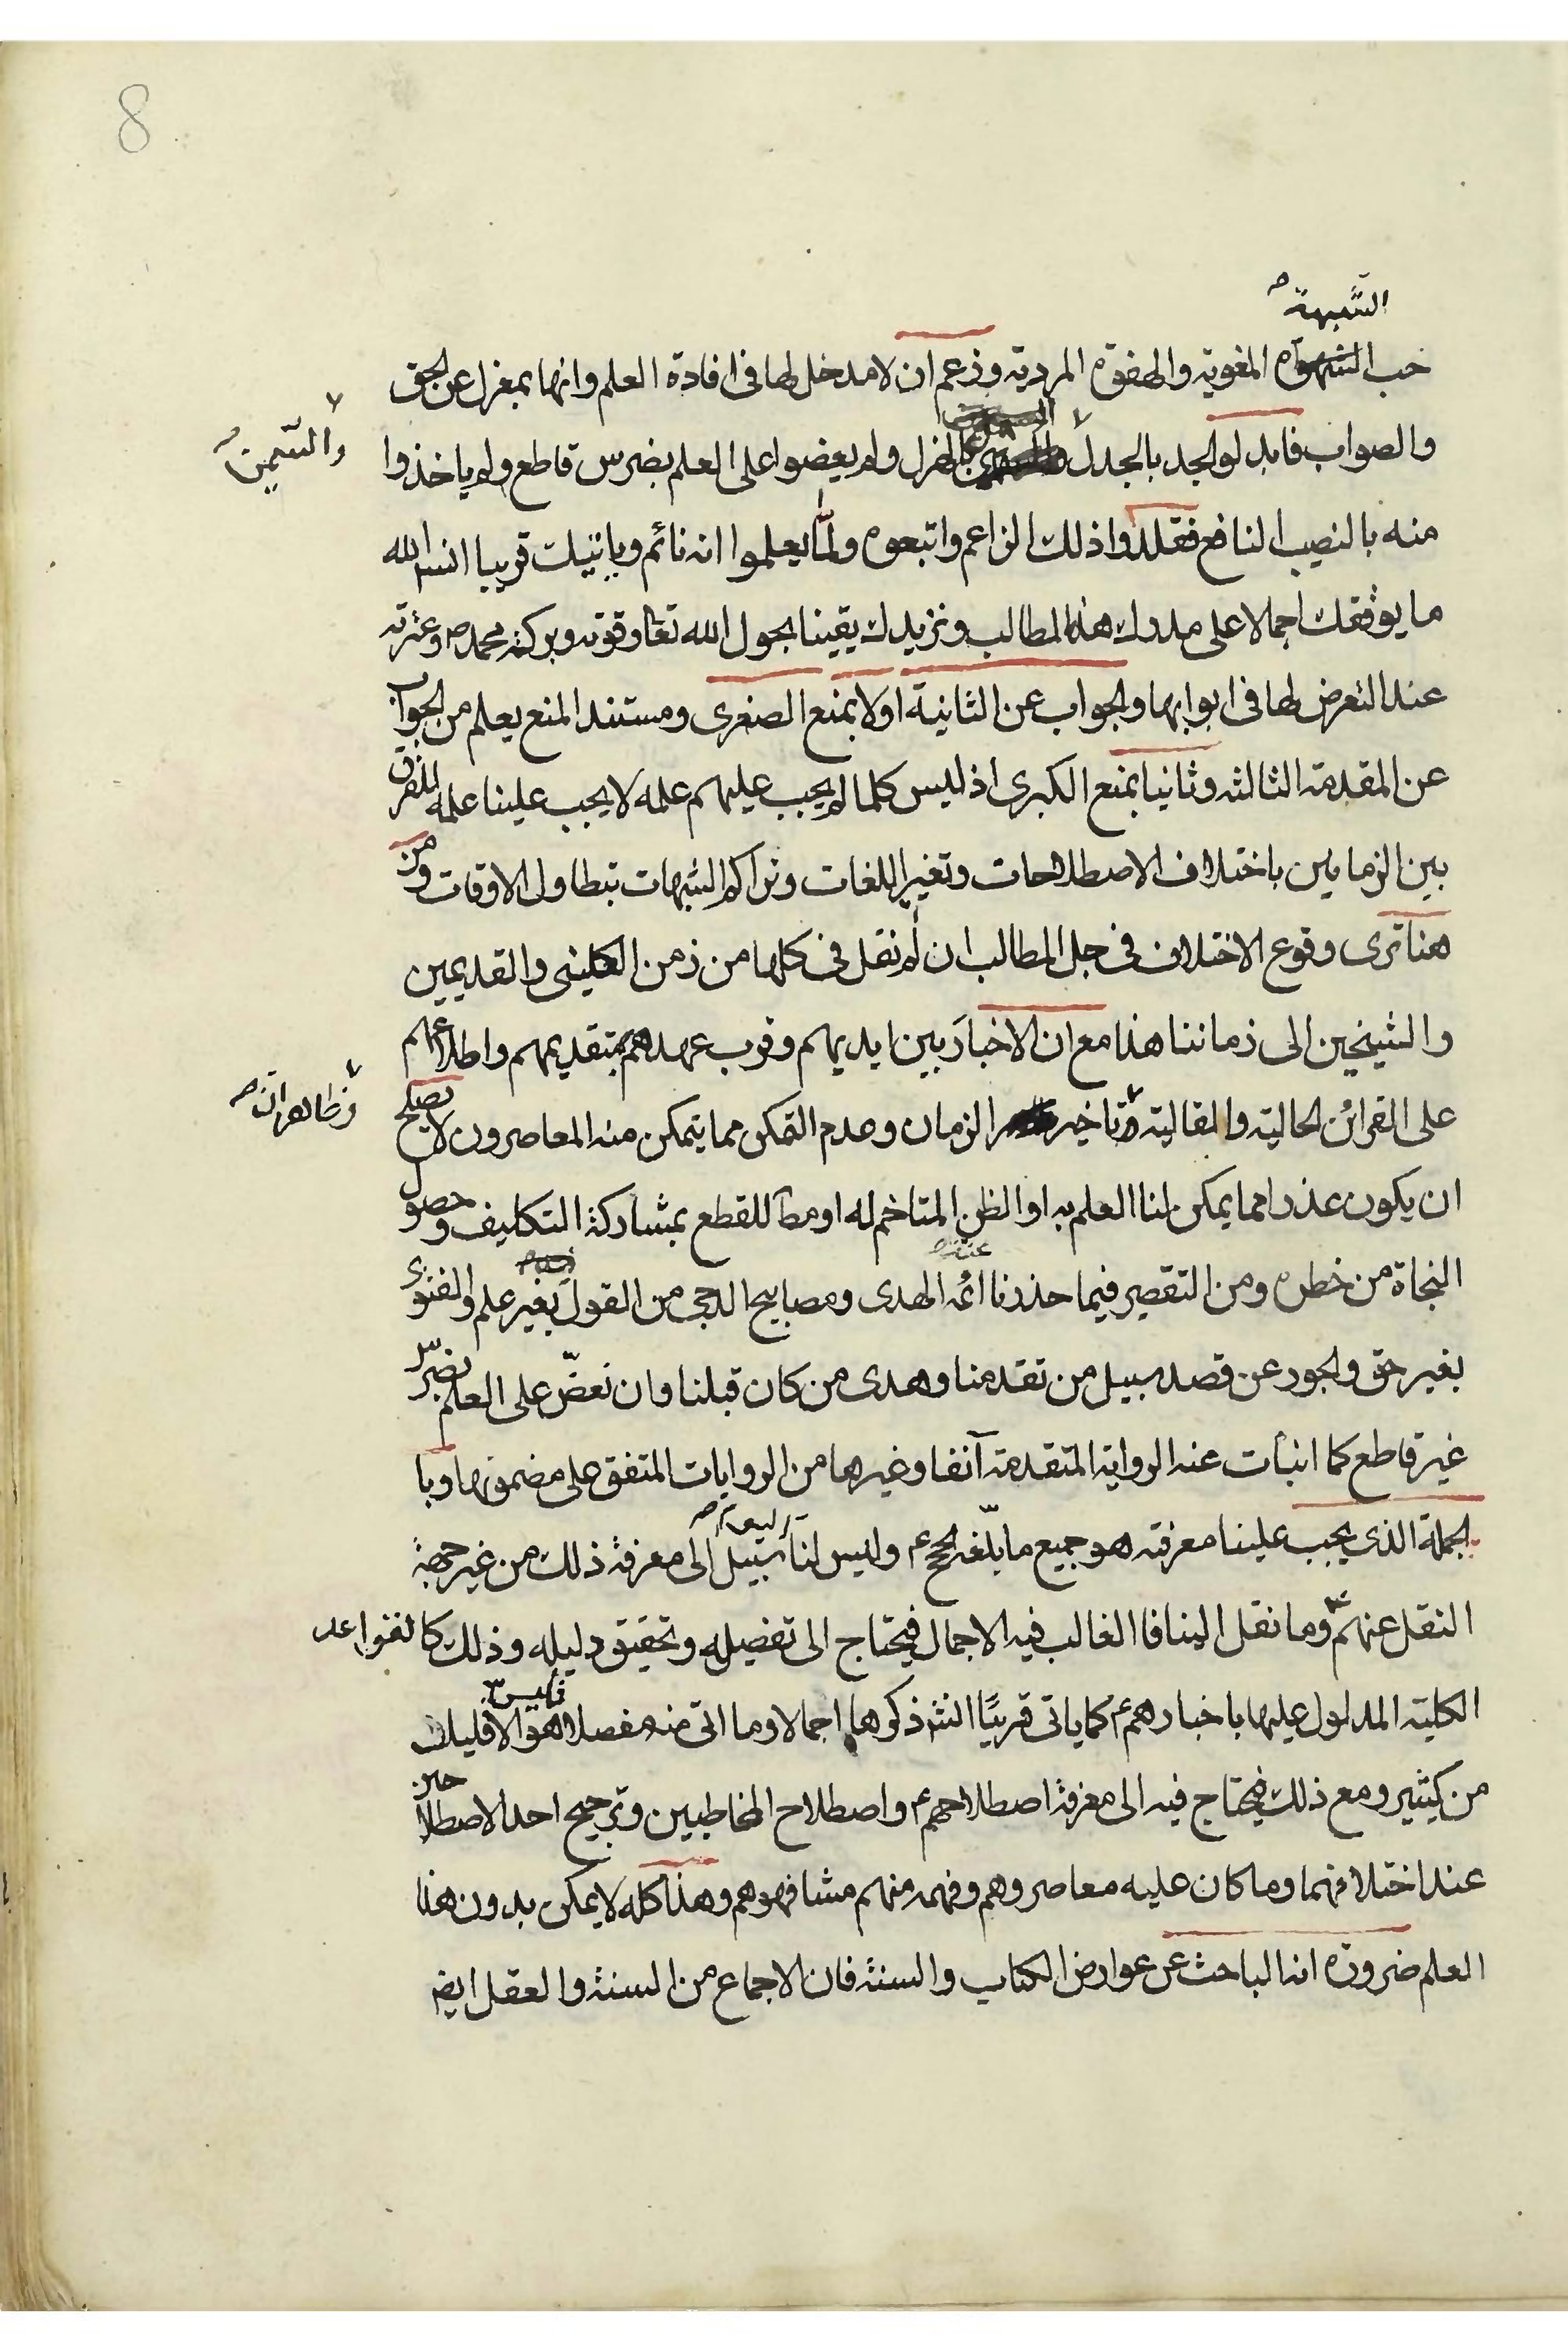 8
الشبهة ص
حب الشهوة المغوية والهفوة المردية وزعم ان لا مدخل لها فى افادة العلم وانها بمعزل عن الحق
والصواب فابدلوا الجد بالجدل بالهزل ولم يعضوا على العلم بضرس قاطع ولم ياخذوا
والسمين ص
منه بالنصيب النافع فقلدوا ذلك الزاعم واتبعوه ولما يعلموا انه نائم وياتيك قريبا انشاء الله
ما يوقفك اجمالا على مدرك هذه المطالب ونزيدك يقينا بحول الله تعا وقوته وبركة محمد ص وعترته
عند التعرض لها فى ابوابها والجواب عن الثانية اولا بمنع الصغرى ومستند المنع يعلم من الجواب
عن المقدمة الثالثه وثانيا بمنع الكبرى اذ ليس كلما لم يجب عليهم علمه لا يجب علينا علمه للفرق
بين الزمانين باختلاف الاصطلاحات وتغير اللغات وتراكم الشبهات بتطاول الاوقات ومن
هنا ترى وقوع الاختلاف فى جل المطالب ان لم نقل فى كلها من زمن الكلينى والقديمين
والشيخين الى زماننا هذا مع ان الاخبار بين ايديهم وقرب عهدهم بمتقديمهم واطلاعهم
على القرائن الحالية والمقالية وتاخير الزمان وعدم التمكن مما يتمكن منه المعاصرون لا يصلح
ونظائرها ص
ان يكون عذرا مما يمكن لنا العلم به او الظن المتاخم له او مطا للقطع بمشاركة التكاليف وحصول
النجاة من خطره ومن التقصير فيما حذرنا عنه ص ائمة الهدى ومصابيح الدجى من القول بغير علم والفتوى
بغير حق والجور عن قصد سبيل من تقدمنا وهدى من كان قبلنا وان نعض على العلم بضرس
غير قاطع كما انبأت عنه الرواية المتقدمة آنفا وغيرها من الروايات المتفق على مضمونها وبا
لجملة الذى يجب علينا معرفته هو جميع ما بلغه الحجج ع وليس لنا سبيل الى معرفة ذلك من غير جهة
النقل عنهم ع وما نقل الينا فا الغالب فيه الاجمال فيحتاج الى تفصيله وتحقيق دليله وذلك كالقواعد
الكلية المدلول عليها باخبارهم ع كما ياتى قريبًا انش ذكرها اجمالا وما اتى منه مفصلا فليس هو الا قليلا
من كثير ومع ذلك فيحتاج فيه الى معرفة اصطلاحهم ع واصطلاح المخاطبين وترجيح احد الاصطلاحين
عند اختلافهما وما كان عليه معاصروهم وفهمه منهم مشافهوهم وهذا كله لا يمكن بدون هذا
العلم ضرورة انه الباحث عن عوارض الكتاب والسنة فان الاجماع من السنة والعقل ايض